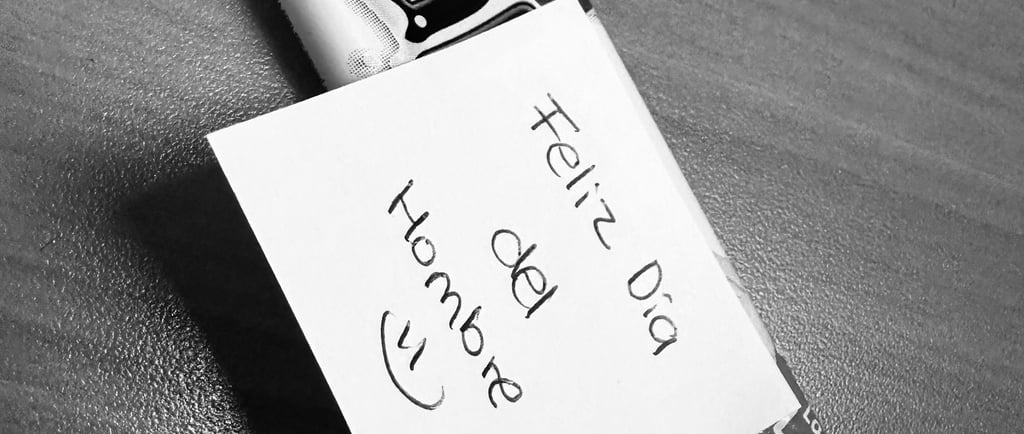 Feliz Día
del
Hombre